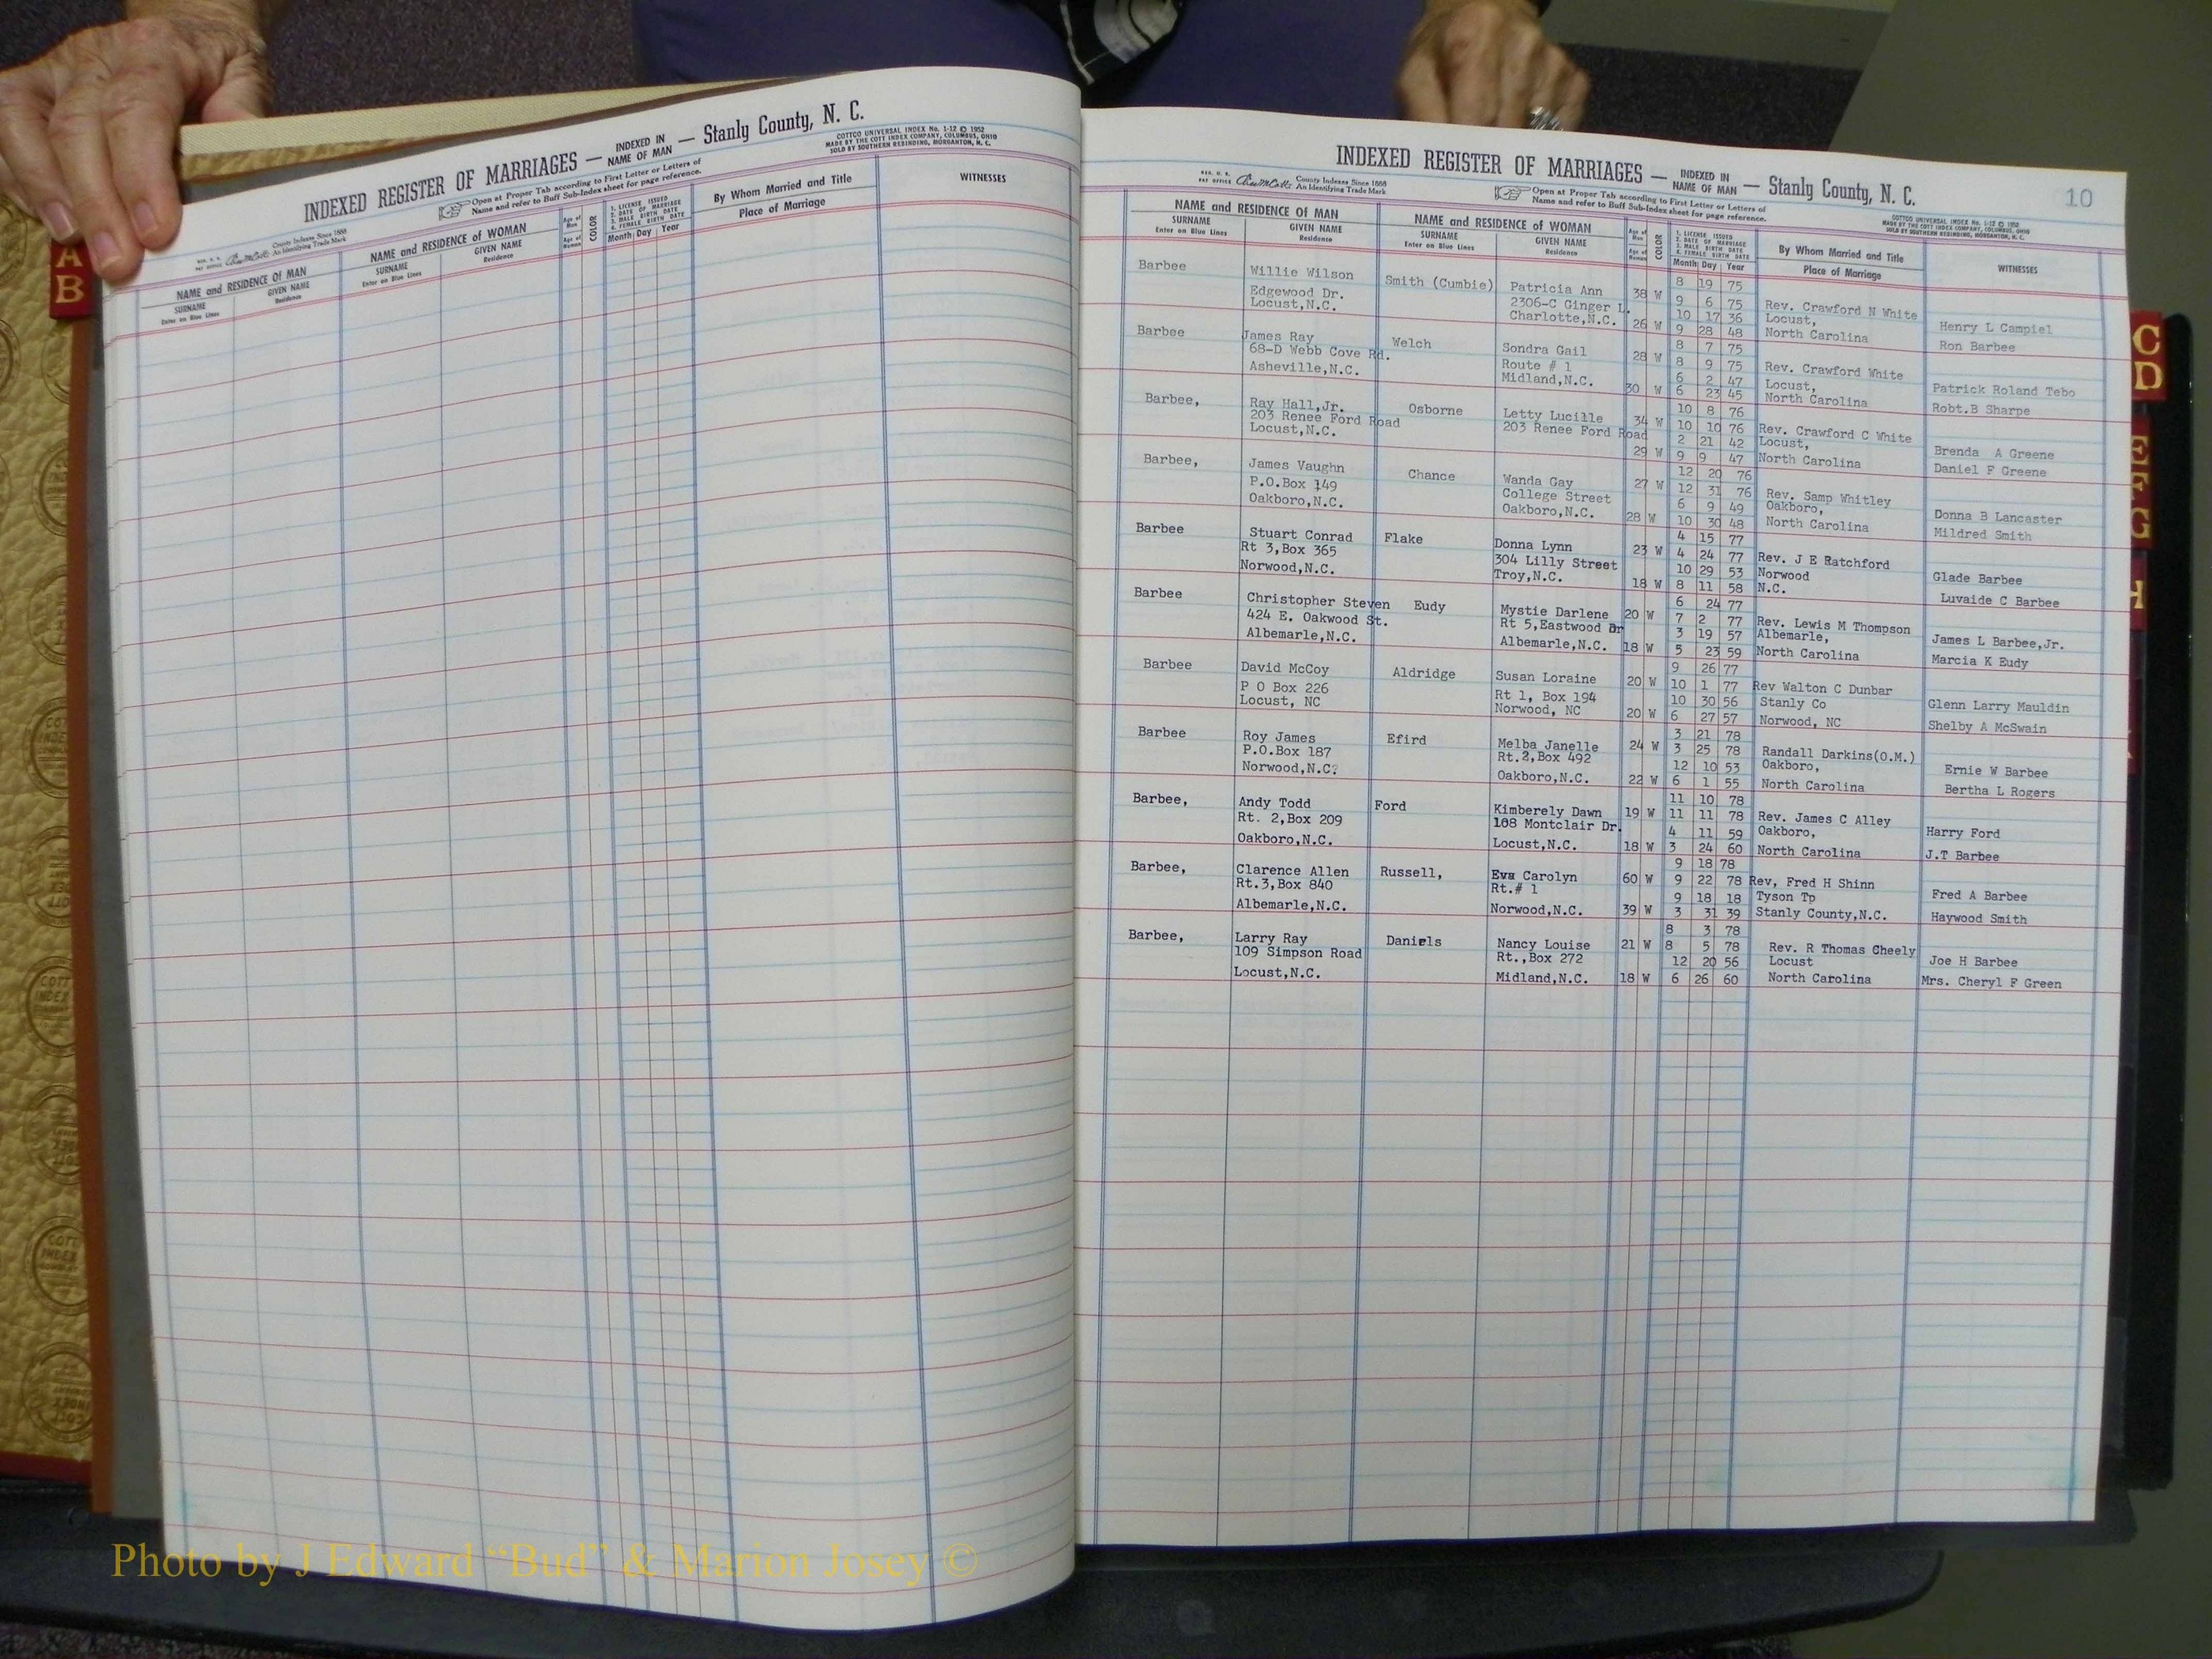 INDEXED REGISTER OF MARRIAGES — INDEXED IN NAME OF MAN — Stanly County, N. C.
COTTCO UNIVERSAL INDEX No. 1-12 © 1952
MADE BY THE COTT INDEX COMPANY, COLUMBUS, OHIO
SOLD BY SOUTHERN REBINDING, MORGANTON, N. C.
County Indexes Since 1888
An Identifying Trade Mark
Open at Proper Tab according to First Letter or Letters of
Name and refer to Buff Sub-Index sheet for page reference.
NAME and RESIDENCE OF MAN
SURNAME
Enter on Blue Lines
GIVEN NAME
Residence
NAME and RESIDENCE OF WOMAN
SURNAME
Enter on Blue Lines
GIVEN NAME
Residence
Age of Man
Age of Woman
COLOR
1. LICENSE ISSUED
2. DATE OF MARRIAGE
3. MALE BIRTH DATE
4. FEMALE BIRTH DATE
Month Day Year
By Whom Married and Title
Place of Marriage
WITNESSES
A
B
INDEXED REGISTER OF MARRIAGES — INDEXED IN NAME OF MAN — Stanly County, N. C.
10
County Indexes Since 1888
An Identifying Trade Mark
Open at Proper Tab according to First Letter or Letters of
Name and refer to Buff Sub-Index sheet for page reference.
COTTCO UNIVERSAL INDEX No. 1-12 © 1952
MADE BY THE COTT INDEX COMPANY, COLUMBUS, OHIO
SOLD BY SOUTHERN REBINDING, MORGANTON, N. C.
NAME and RESIDENCE OF MAN
SURNAME
Enter on Blue Lines
GIVEN NAME
Residence
NAME and RESIDENCE OF WOMAN
SURNAME
Enter on Blue Lines
GIVEN NAME
Residence
Age of Man
Age of Woman
COLOR
1. LICENSE ISSUED
2. DATE OF MARRIAGE
3. MALE BIRTH DATE
4. FEMALE BIRTH DATE
Month Day Year
By Whom Married and Title
Place of Marriage
WITNESSES
Barbee Willie Wilson Smith (Cumbie) Patricia Ann 38 W 8 19 75
Edgewood Dr. 2306-C Ginger L. 9 6 75 Rev. Crawford N White
Locust,N.C. Charlotte,N.C. 10 17 36 Locust, Henry L Campiel
26 W 9 28 48 North Carolina Ron Barbee
Barbee James Ray Welch Sondra Gail 28 W 8 7 75
68-D Webb Cove Rd. Route # 1 8 9 75 Rev. Crawford White
Asheville,N.C. Midland,N.C. 6 2 47 Locust, Patrick Roland Tebo
30 W 6 23 45 North Carolina Robt.B Sharpe
Barbee, Ray Hall,Jr. Osborne Letty Lucille 34 W 10 8 76
203 Renee Ford Road 203 Renee Ford Road 10 10 76 Rev. Crawford C White
Locust,N.C. 2 21 42 Locust, Brenda A Greene
29 W 9 9 47 North Carolina Daniel F Greene
Barbee, James Vaughn Chance Wanda Gay 27 W 12 20 76
P.O.Box 149 College Street 12 31 76 Rev. Samp Whitley
Oakboro,N.C. Oakboro,N.C. 6 9 49 Oakboro, Donna B Lancaster
28 W 10 30 48 North Carolina Mildred Smith
Barbee Stuart Conrad Flake Donna Lynn 23 W 4 15 77
Rt 3,Box 365 304 Lilly Street 4 24 77 Rev. J E Ratchford
Norwood,N.C. Troy,N.C. 10 29 53 Norwood Glade Barbee
18 W 8 11 58 N.C. Luvaide C Barbee
Barbee Christopher Steven Eudy Mystie Darlene 20 W 6 24 77
424 E. Oakwood St. Rt 5,Eastwood Dr 7 2 77 Rev. Lewis M Thompson
Albemarle,N.C. Albemarle,N.C. 3 19 57 Albemarle, James L Barbee,Jr.
18 W 5 23 59 North Carolina Marcia K Eudy
Barbee David McCoy Aldridge Susan Loraine 20 W 9 26 77
P O Box 226 Rt 1, Box 194 10 1 77 Rev Walton C Dunbar
Locust, NC Norwood, NC 10 30 56 Stanly Co Glenn Larry Mauldin
20 W 6 27 57 Norwood, NC Shelby A McSwain
Barbee Roy James Efird Melba Janelle 24 W 3 21 78
P.O.Box 187 Rt.2,Box 492 3 25 78 Randall Darkins(O.M.)
Norwood,N.C. Oakboro,N.C. 12 10 53 Oakboro, Ernie W Barbee
22 W 6 1 55 North Carolina Bertha L Rogers
Barbee, Andy Todd Ford Kimberely Dawn 19 W 11 10 78
Rt. 2,Box 209 108 Montclair Dr. 11 11 78 Rev. James C Alley
Oakboro,N.C. Locust,N.C. 4 11 59 Oakboro, Harry Ford
18 W 3 24 60 North Carolina J.T Barbee
Barbee, Clarence Allen Russell, Eva Carolyn 60 W 9 18 78
Rt.3,Box 840 Rt.# 1 9 22 78 Rev, Fred H Shinn
Albemarle,N.C. Norwood,N.C. 9 18 18 Tyson Tp Fred A Barbee
39 W 3 31 39 Stanly County,N.C. Haywood Smith
Barbee, Larry Ray Daniels Nancy Louise 21 W 8 3 78
109 Simpson Road Rt.,Box 272 8 5 78 Rev. R Thomas Cheely
Locust,N.C. Midland,N.C. 12 20 56 Locust Joe H Barbee
18 W 6 26 60 North Carolina Mrs. Cheryl F Green
C
D
E
F
G
H
Photo by J Edward “Bud” & Marion Josey ©